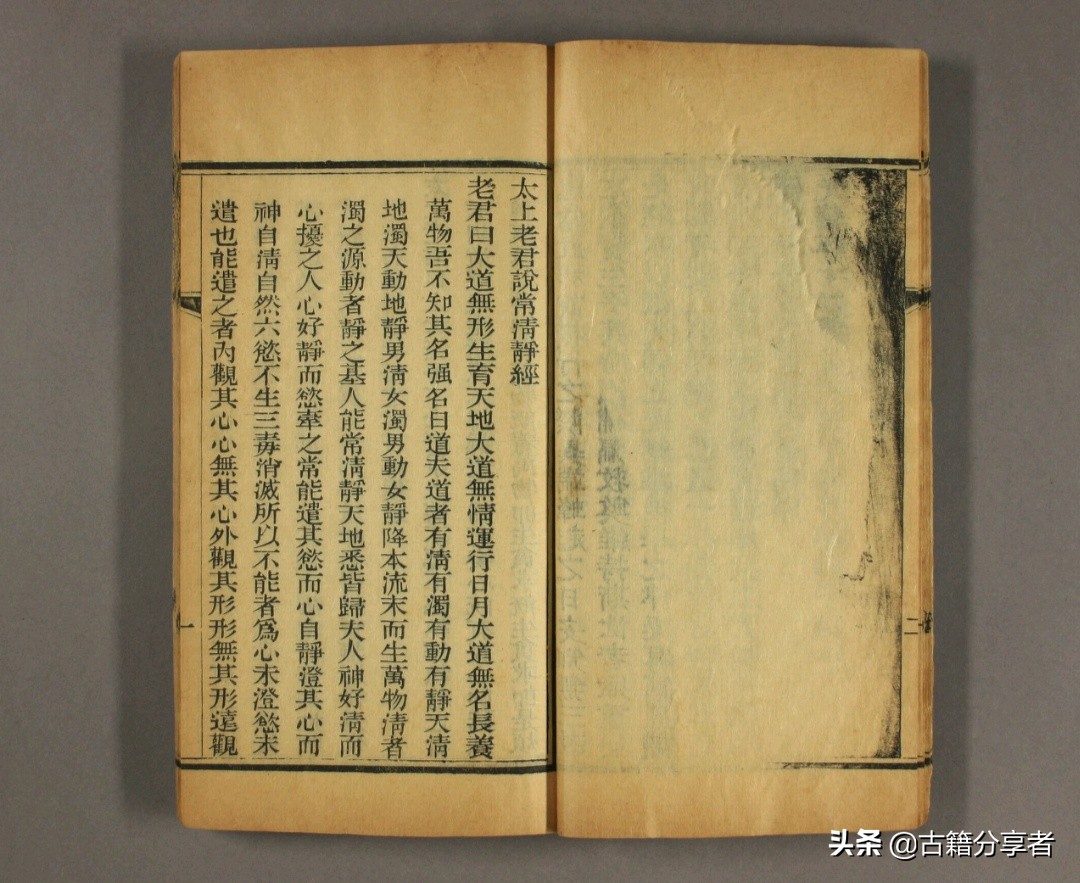 太上老君說常清靜經
老君曰大道無形生育天地大道無情運行日月大道無名長養
萬物吾不知其名强名曰道夫道者有清有濁有動有靜天清
地濁天動地靜男清女濁男動女靜降本流末而生萬物清者
濁之源動者靜之基人能常清靜天地悉皆歸夫人神好清而
心擾之人心好靜而慾牽之常能遣其慾而心自靜澄其心而
神自清自然六慾不生三毒消滅所以不能者爲心未澄慾未
遣也能遣之者內觀其心心無其心外觀其形形無其形遠觀
一
二
头条 @古籍分享者